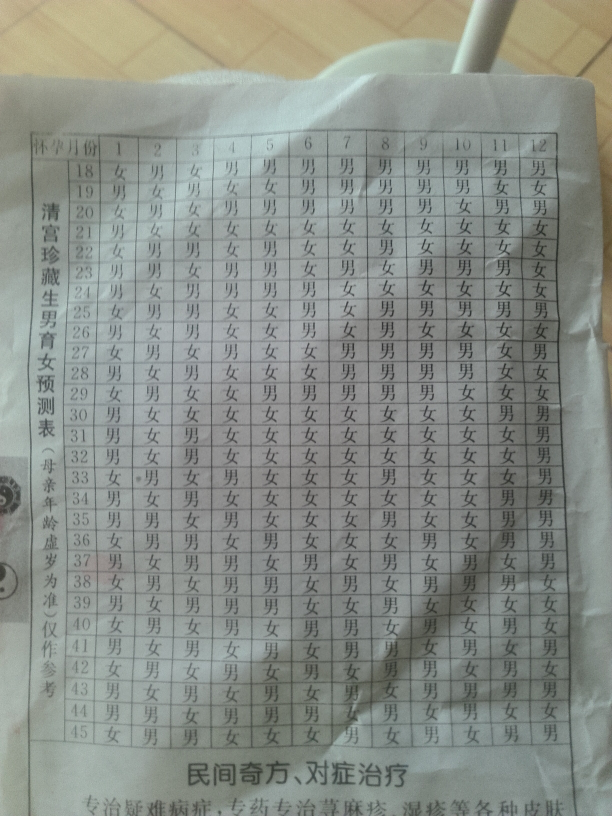 怀孕月份 1 2 3 4 5 6 7 8 9 10 11 12
清宫珍藏生男育女预测表(母亲年龄虚岁为准)仅作参考
18 女 男 女 男 男 男 男 男 男 男 男 男
19 男 女 男 女 女 男 男 男 男 男 女 女
20 女 男 女 男 男 男 男 男 男 女 男 男
21 男 女 女 女 女 女 女 女 女 女 女 女
22 女 男 男 女 男 女 女 男 女 女 女 女
23 男 男 女 男 男 女 男 女 男 男 男 女
24 男 女 男 男 男 男 女 女 女 女 女 女
25 女 男 男 女 女 男 女 男 男 男 男 男
26 男 女 男 女 女 男 女 男 女 女 女 女
27 女 男 女 男 女 女 男 男 男 男 女 男
28 男 女 男 女 女 女 男 男 男 男 女 女
29 女 男 女 女 男 男 男 男 男 女 女 女
30 男 女 女 女 女 女 女 女 女 女 男 男
31 男 女 男 女 女 女 女 女 女 女 女 男
32 男 女 男 女 女 女 女 女 女 女 女 男
33 女 男 女 男 女 女 女 男 女 女 女 男
34 男 女 男 女 女 女 女 女 女 女 男 男
35 男 男 女 男 女 女 女 男 女 女 男 男
36 女 男 男 女 男 女 女 女 男 女 男 男
37 男 女 男 男 女 男 女 男 女 男 女 男
38 女 男 女 男 男 女 男 女 男 男 男 女
39 男 女 男 男 男 女 女 男 女 男 女 女
40 女 男 女 男 女 男 男 女 男 女 男 女
41 男 女 男 女 男 女 男 男 女 男 女 男
42 女 男 女 男 女 男 女 男 男 女 男 女
43 男 女 男 女 男 女 男 女 男 男 男 男
44 男 男 女 男 男 男 女 男 女 男 女 女
45 女 男 男 女 女 女 男 女 男 女 男 男
民间奇方、对症治疗
专治疑难病症,专药专治荨麻疹、湿疹等各种皮肤